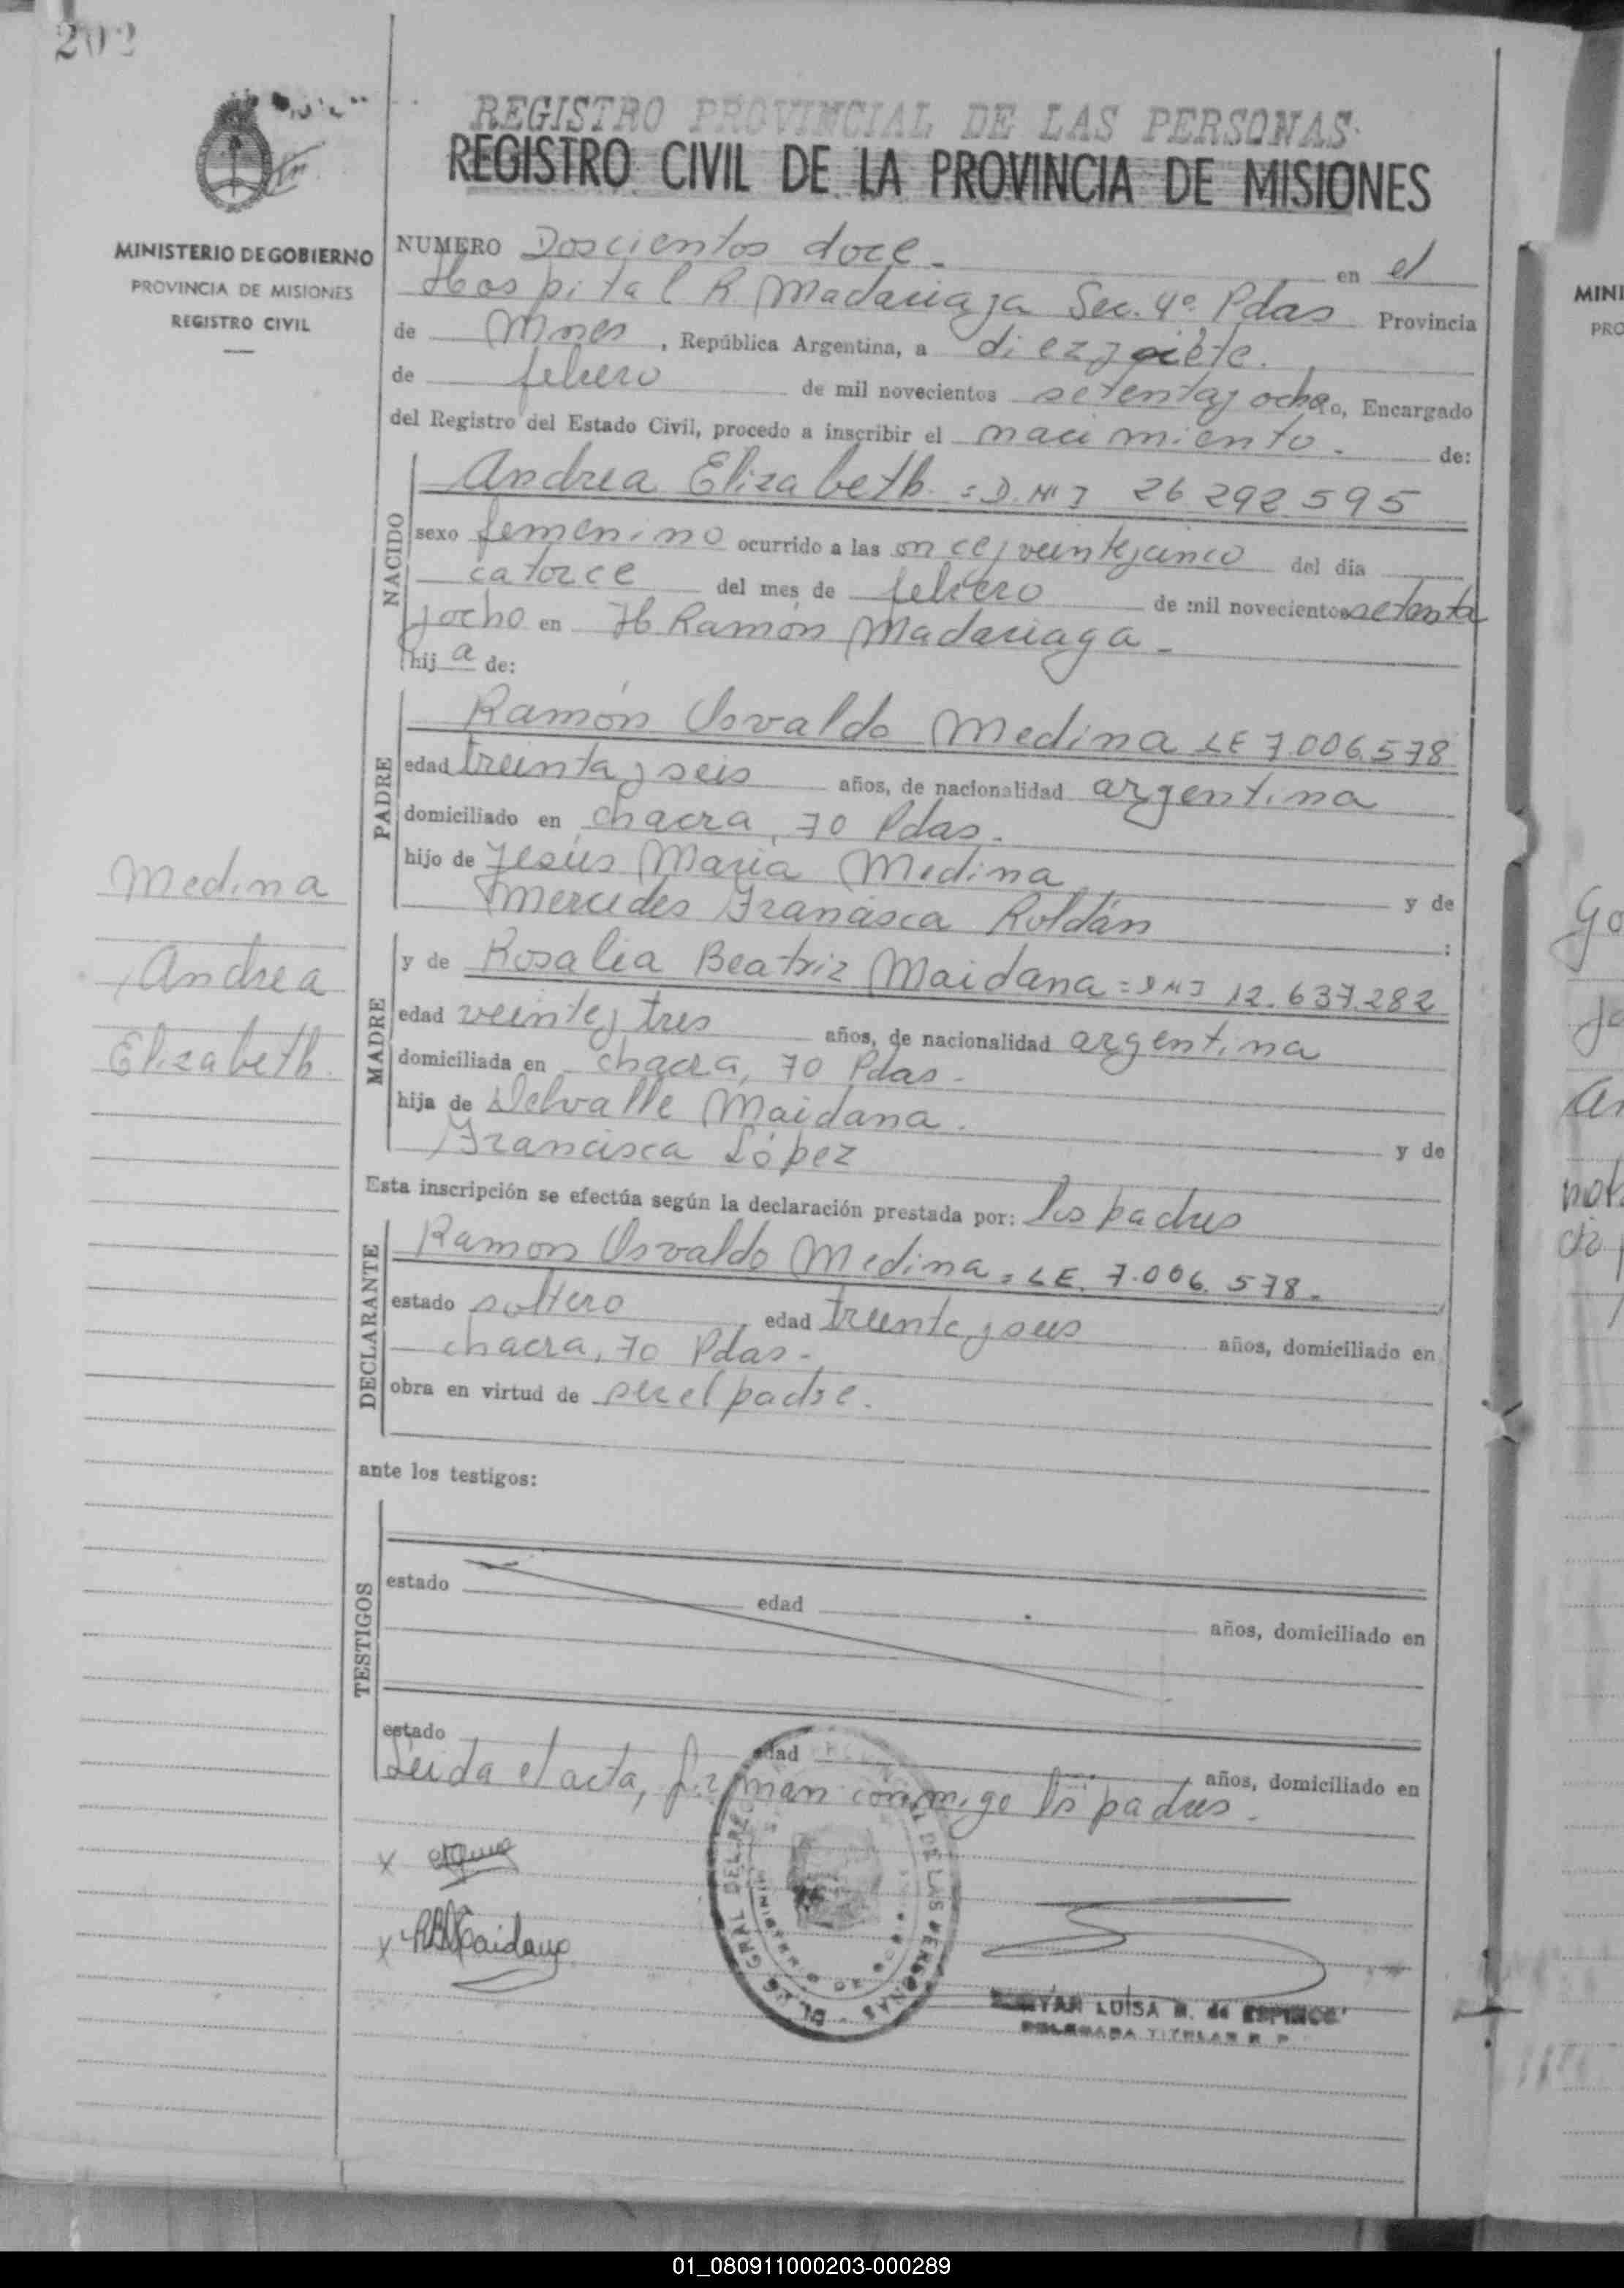 202
REGISTRO PROVINCIAL DE LAS PERSONAS
REGISTRO CIVIL DE LA PROVINCIA DE MISIONES
MINISTERIO DE GOBIERNO
PROVINCIA DE MISIONES
REGISTRO CIVIL
NUMERO Doscientos doce - en el
Hospital R Madariaga Sec. 4º Pdas Provincia
de Mnes, República Argentina, a diez y siete.
de febrero de mil novecientos setenta y ocho, Encargado
del Registro del Estado Civil, procedo a inscribir el nacimiento. de:
NACIDO
Andrea Elizabeth = D.N.I 26 292 595
sexo femenino ocurrido a las once y veinte y cinco del día
catorce del mes de febrero de mil novecientos setenta
y ocho en H. Ramón Madariaga -
hija de:
PADRE
Ramón Osvaldo Medina LE 7.006.578
edad treinta y seis años, de nacionalidad argentina
domiciliado en chacra, 70 Pdas.
hijo de Jesús María Medina y de
Mercedes Francisca Roldán ;
MADRE
y de Rosalia Beatriz Maidana = DNI 12.637.282
edad veinte y tres años, de nacionalidad argentina
domiciliada en chacra, 70 Pdas -
hija de Delvalle Maidana. y de
Francisca López
Esta inscripción se efectúa según la declaración prestada por: los padres
DECLARANTE
Ramon Osvaldo Medina = LE. 7.006.578.
estado soltero edad treinta y seis años, domiciliado en
chacra, 70 Pdas -
obra en virtud de ser el padre.
ante los testigos:
TESTIGOS
estado edad años, domiciliado en
estado edad años, domiciliado en
Leida el acta, firman conmigo los padres.
x
x RBMaidana
LUISA M. de ESPINOSA
DELEGADA TITULAR R. P.
DE LAS PERSONAS
Medina
Andrea
Elizabeth.
MINI
PRO
01_080911000203-000289